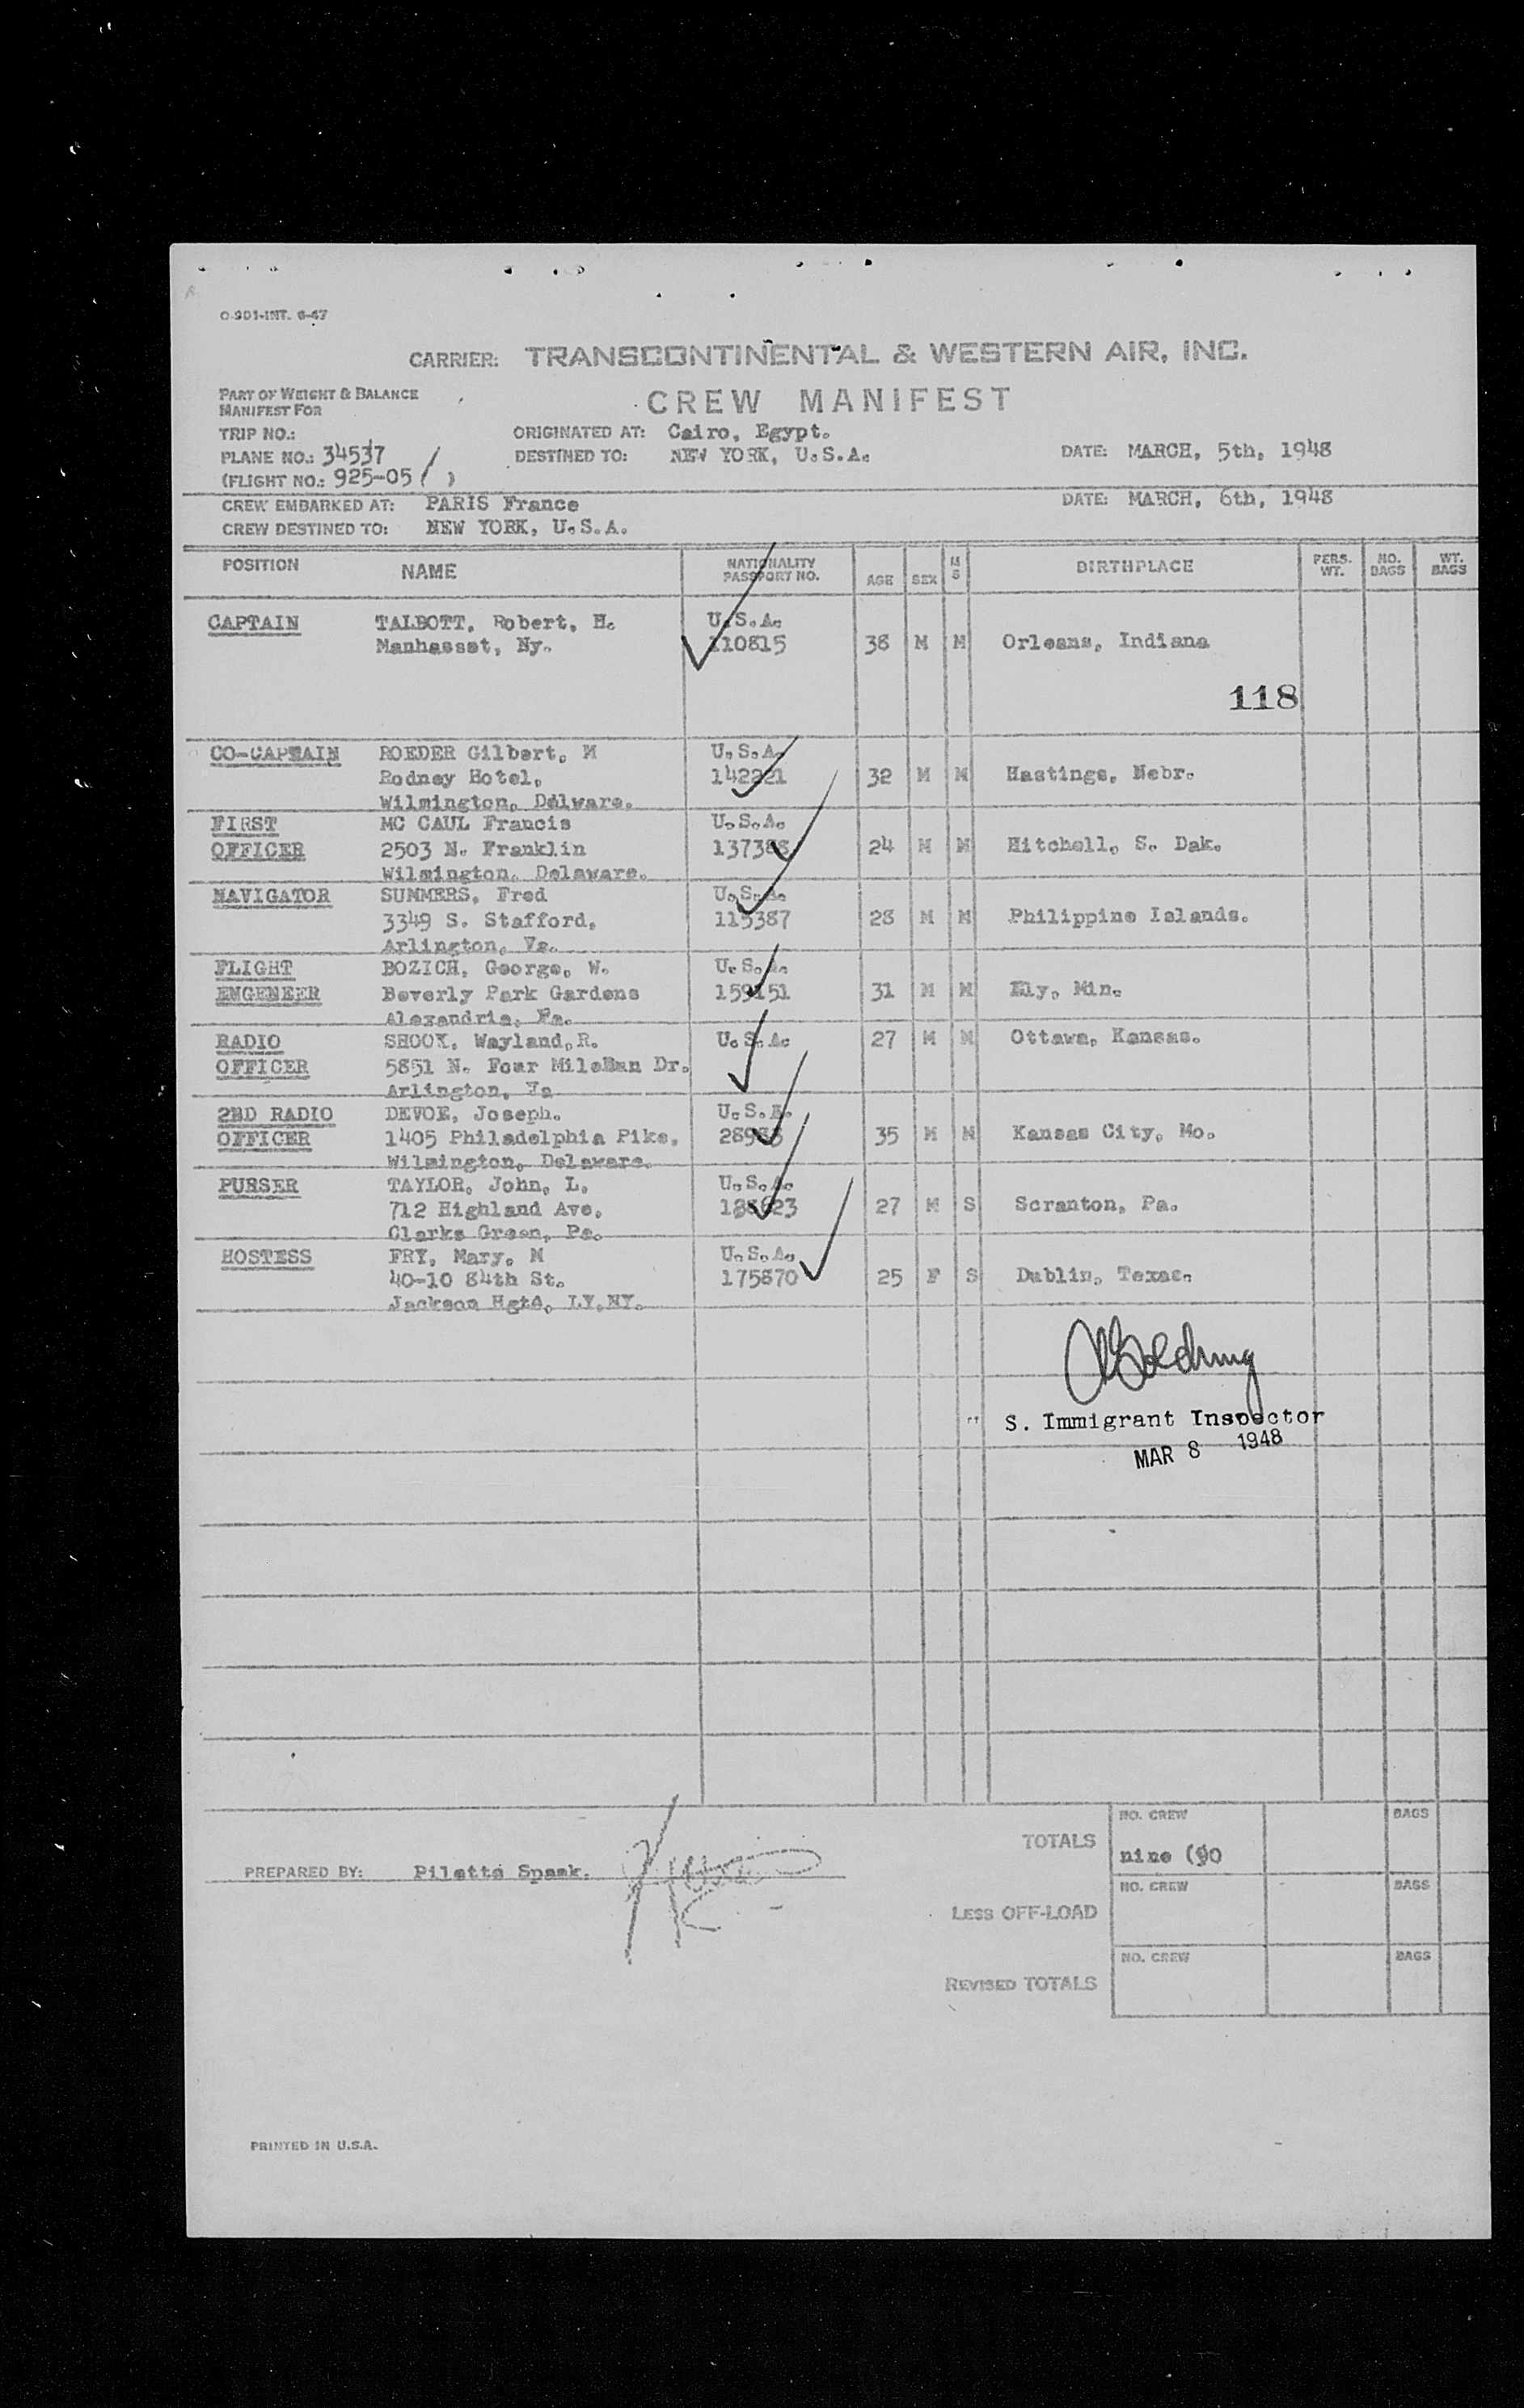 O-901-INT. 6-47
CARRIER: TRANSCONTINENTAL & WESTERN AIR, INC.
PART OF WEIGHT & BALANCE
MANIFEST FOR
CREW MANIFEST
TRIP NO.:
ORIGINATED AT: Cairo, Egypt.
PLANE NO.: 34537
DESTINED TO: NEW YORK, U.S.A.
DATE: MARCH, 5th, 1948
(FLIGHT NO.: 925-05 / )
CREW EMBARKED AT: PARIS France
DATE: MARCH, 6th, 1948
CREW DESTINED TO: NEW YORK, U.S.A.
POSITION NAME NATIONALITY PASSPORT NO. AGE SEX M S BIRTHPLACE PERS. WT. NO. BAGS WT. BAGS
CAPTAIN TALBOTT, Robert, H. U.S.A.
Manhasset, Ny. 110815 38 M M Orleans, Indiana
118
CO-CAPTAIN ROEDER Gilbert, M U.S.A.
Rodney Hotel, 142221 32 M M Hastings, Nebr.
Wilmington, Delware.
FIRST MC CAUL Francis U.S.A.
OFFICER 2503 N. Franklin 24 M M Mitchell, S. Dak.
Wilmington, Delaware.
NAVIGATOR SUMMERS, Fred U.S.A.
3349 S. Stafford, 115387 28 M M Philippine Islands.
Arlington, Va.
FLIGHT BOZICH, George, W. U.S.A.
ENGENEER Beverly Park Gardens 159151 31 M M Ely, Min.
Alexandria, Va.
RADIO SHOOK, Wayland, R. U.S.A. 27 M M Ottawa, Kansas.
OFFICER 5851 N. Four MileRun Dr.
Arlington, Va
2ND RADIO DEVOE, Joseph. U.S.A.
OFFICER 1405 Philadelphia Pike, 35 M M Kansas City, Mo.
Wilmington, Delaware.
PURSER TAYLOR, John, L. U.S.A.
712 Highland Ave. 27 M S Scranton, Pa.
Clarks Green, Pa.
HOSTESS FRY, Mary, M U.S.A.
40-10 84th St. 175870 25 F S Dublin, Texas.
Jackson Hgts, LY,NY.
S. Immigrant Inspector
MAR 8 1948
TOTALS NO. CREW BAGS
nine (90
PREPARED BY: Piletta Spaak.
LESS OFF-LOAD NO. CREW BAGS
REVISED TOTALS NO. CREW BAGS
PRINTED IN U.S.A.